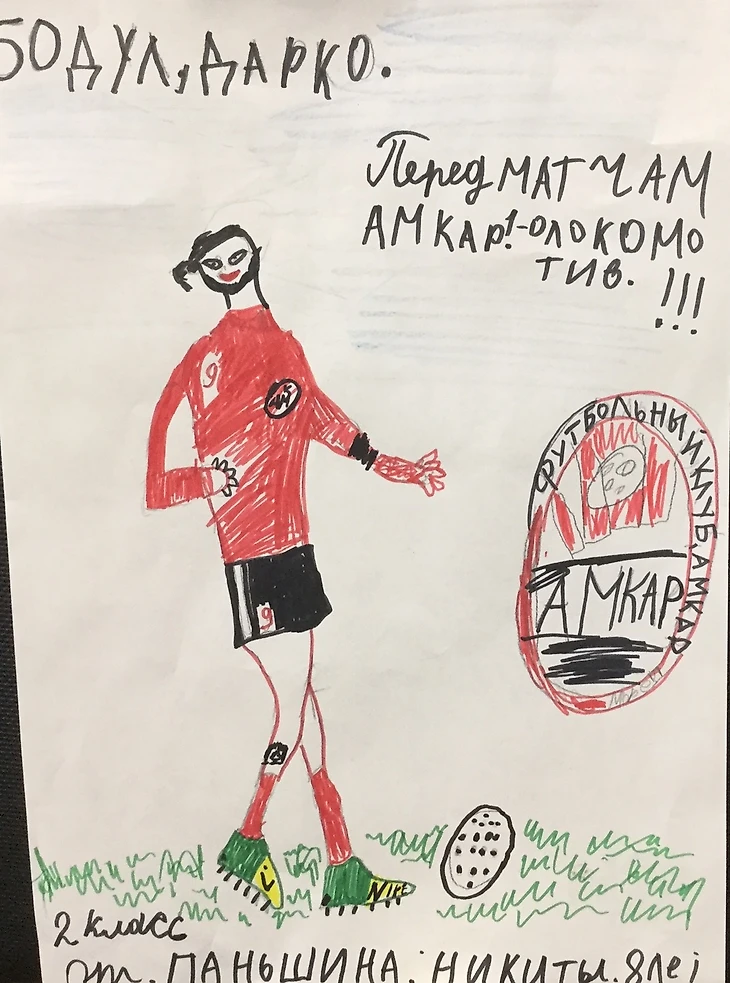 БОДУЛ,ДАРКО.
Перед МАТЧАМ
АМКАР!-ОЛОКОМО
ТИВ. !!!
9
ФУТБОЛЬНЫЙ КЛУБ,АМКАР
АМКАР
9
NIKE
2 класс
от. ПАНЬШИНА. НИКИТЫ. 8 ле